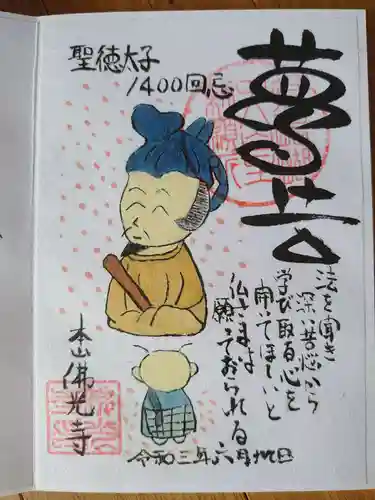 聖徳太子
1400回忌
法を聞き
深い苦悩から
学び取る心を
開いてほしいと
仏さまは
願っておられる
本山佛光寺
令和三年六月